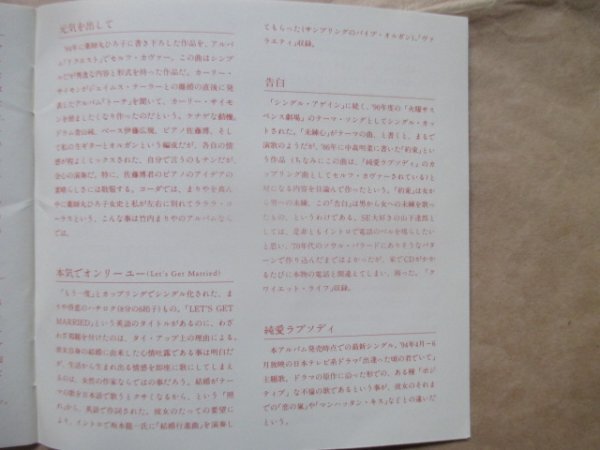 元気を出して
'84年に薬師丸ひろ子に書き下ろした作品を、アルバ
ム「リクエスト」でセルフ・カヴァー。この曲はシンプ
ルだが勇壮な内容と形式を持った作品だ。カーリー・
サイモンがジェイムス・テーラーとの離婚の直後に発
表したアルバム「トーチ」を聞いて、カーリー・サイモ
ンを励ましたくなり作ったのだという。ケナゲな動機。
ドラム青山純、ベース伊藤広規、ピアノ佐藤博、そし
て私の生ギターとオルガンという編成だが、各自の情
感が程よくミックスされた、自分で言うのもナンだが、
会心の演奏だ。特に、佐藤博君のピアノのアイデアの
素晴らしさには敬服する。コーダでは、まりやを真ん
中に薬師丸ひろ子女史と私が左右に別れてラララ・コ
ーラスという、こんな事は竹内まりやのアルバムなら
では。
本気でオンリーユー(Let's Get Married)
「もう一度」とカップリングでシングル化された、ま
りや得意のハチロク(8分の6拍子)もの。「LET'S GET
MARRIED」という英語のタイトルがあるのに、わざ
わざ邦題を付けたのは、タイ・アップ上の理由による。
彼女自身の結婚に由来した心情吐露である事は明白だ
が、生活から生まれ出る情感を即座に歌にしてしまえ
るのは、女性の作家ならではの事だろう。結婚がテー
マの歌を日本語で歌うとクサくなるから、という「照
れ」から、英語で作詞された。彼女のたっての要望に
より、イントロで坂本龍一氏に「結婚行進曲」を演奏し
てもらった(サンプリングのパイプ・オルガン)。「ヴァ
ラエティ」収録。
告白
「シングル・アゲイン」に続く、'90年度の「火曜サス
ペンス劇場」のテーマ・ソングとしてシングル・カ
ットされた。「未練心」がテーマの曲、と書くと、まるで
演歌のようだが、'86年に中森明菜に書いた「約束」とい
う作品(ちなみにこの曲は、「純愛ラプソディ」のカ
ップリング曲としてセルフ・カヴァーされている)と
対になる内容を目論んで作ったという。「約束」は女か
ら男への未練、この「告白」は男から女への未練を歌っ
たもの、というわけである。SE大好きの山下達郎とし
ては、是非ともイントロで電話のベルを鳴らしたい
と思い、'70年代のソウル・バラードにありそうなパタ
ーンで作り込んだまではよかったが、家でCDがかか
るたびに本物の電話と間違えてしまい、困った。「ク
ワイエット・ライフ」収録。
純愛ラプソディ
本アルバム発売時点での最新シングル。'94年4月〜6
月放映の日本テレビ系ドラマ「出逢った頃の君でいて」
主題歌。ドラマの原作に沿った形での、ある種「ポジ
ティブ」な不倫の歌であるという事が、彼女のそれま
での「恋の嵐」や「マンハッタン・キス」などとの違いだ
という。